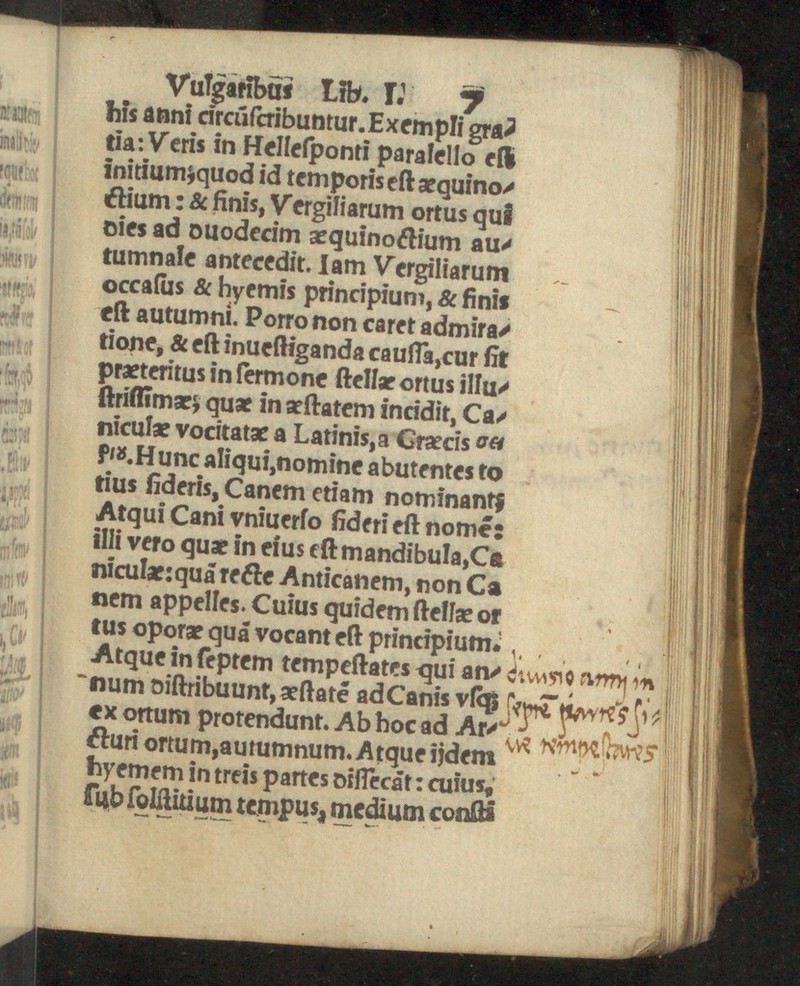 Vulgaribus Lib. I. 7
his anni circũſcribuntur. Exempli gra⸗
tia: Veris in Helleſponti paralello eſt
initium; quod id temporis eſt æquino⸗
ctium: & finis, Vergiliarum ortus qui
dies ad duodecim æquinoctium au⸗
tumnale antecedit. Iam Vergiliarum
occaſus & hyemis principium, & finis
eſt autumni. Porro non caret admira⸗
tione, & eſt inueſtiganda cauſſa, cur fit
præteritus in ſermone ſtellæ ortus illu⸗
ſtriſſimæ; quæ in æſtatem incidit, Ca⸗
niculæ vocitatæ a Latinis, a Græcis σεί
ριος. Hunc aliqui, nomine abutentes to
tius ſideris, Canem etiam nominant;
Atqui Cani vniuerſo ſideri eſt nomẽ:
illi vero quæ in eius eſt mandibula, Ca
niculæ: quã recte Anticanem, non Ca
nem appelles. Cuius quidem ſtellæ or
tus oporæ quã vocant eſt principium.
Atque in ſeptem tempeſtates qui an⸗
num diſtribuunt, æſtatẽ ad Canis vſqꝫ
ex ortum protendunt. Ab hoc ad Ar⸗
cturi ortum, autumnum. Atque ijdem
hyemem in treis partes diſſecãt: cuius,
ſub ſolſtitium tempus, medium conſti
diuisio anni in
septẽ partes si⸗
ve tempestates